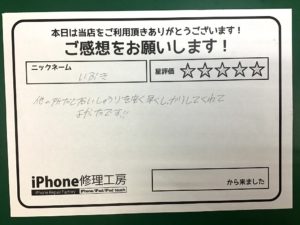 本日は当店をご利用頂きありがとうございます!
ご感想をお願いします!
ニックネーム
いぶき
星評価 ☆☆☆☆☆
他の所だと
を安く早くしゅうりしてくれて
よかったです!!
iPhone修理工房
iPhone Repair Factory
iPhone/iPad/iPod touch
から来ました